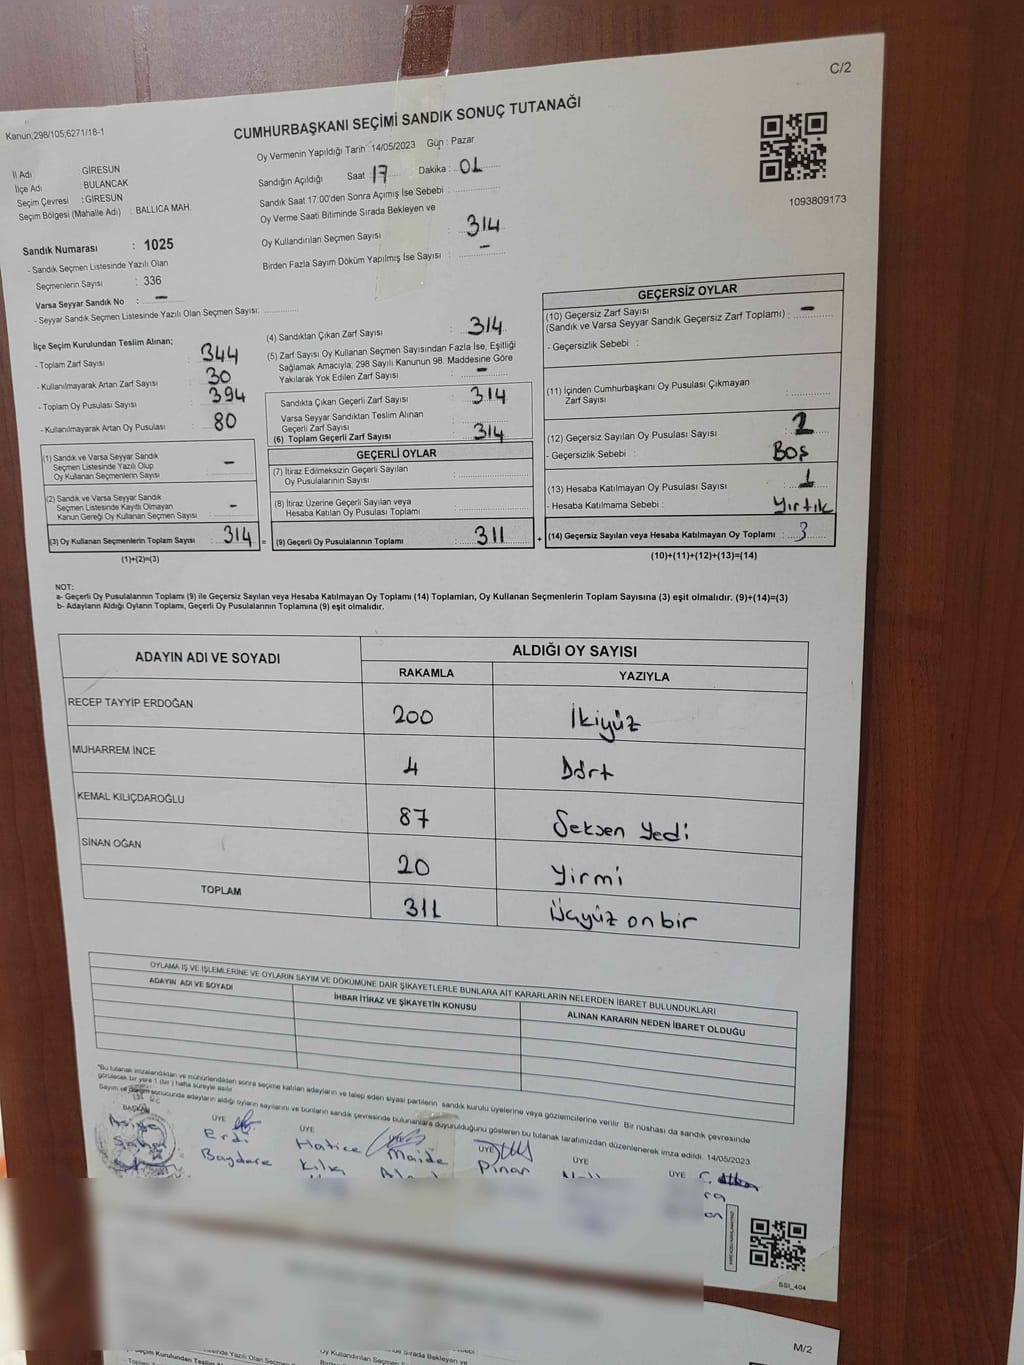 C/2
Kanun;298/105;6271/18-1
CUMHURBAŞKANI SEÇİMİ SANDIK SONUÇ TUTANAĞI
1093809173
Oy Vermenin Yapıldığı Tarih :14/05/2023 Gün : Pazar
İl Adı : GİRESUN
İlçe Adı : BULANCAK
Seçim Çevresi : GİRESUN
Seçim Bölgesi (Mahalle Adı) : BALLICA MAH.
Sandığın Açıldığı Saat 17 Dakika : 01
Sandık Saat 17:00'den Sonra Açımış İse Sebebi :
Oy Verme Saati Bitiminde Sırada Bekleyen ve
Oy Kullandırılan Seçmen Sayısı : 314
Birden Fazla Sayım Döküm Yapılmış İse Sayısı : -
Sandık Numarası : 1025
- Sandık Seçmen Listesinde Yazılı Olan
Seçmenlerin Sayısı : 336
Varsa Seyyar Sandık No : -
- Seyyar Sandık Seçmen Listesinde Yazılı Olan Seçmen Sayısı:
İlçe Seçim Kurulundan Teslim Alınan;
- Toplam Zarf Sayısı : 344
- Kullanılmayarak Artan Zarf Sayısı : 30
- Toplam Oy Pusulası Sayısı : 394
- Kullanılmayarak Artan Oy Pusulası : 80
(1) Sandık ve Varsa Seyyar Sandık
Seçmen Listesinde Yazılı Olup
Oy Kullanan Seçmenlerin Sayısı : -
(2) Sandık ve Varsa Seyyar Sandık
Seçmen Listesinde Kayıtlı Olmayan
Kanun Gereği Oy Kullanan Seçmen Sayısı : -
(3) Oy Kullanan Seçmenlerin Toplam Sayısı : 314 =
(1)+(2)=(3)
(4) Sandıktan Çıkan Zarf Sayısı : 314
(5) Zarf Sayısı Oy Kullanan Seçmen Sayısından Fazla İse, Eşitliği
Sağlamak Amacıyla; 298 Sayılı Kanunun 98. Maddesine Göre
Yakılarak Yok Edilen Zarf Sayısı : -
Sandıkta Çıkan Geçerli Zarf Sayısı : 314
Varsa Seyyar Sandıktan Teslim Alınan
Geçerli Zarf Sayısı :
(6) Toplam Geçerli Zarf Sayısı : 314
GEÇERLİ OYLAR
(7) İtiraz Edilmeksizin Geçerli Sayılan
Oy Pusulalarının Sayısı :
(8) İtiraz Üzerine Geçerli Sayılan veya
Hesaba Katılan Oy Pusulası Toplamı :
(9) Geçerli Oy Pusulalarının Toplamı : 311 +
GEÇERSİZ OYLAR
(10) Geçersiz Zarf Sayısı
(Sandık ve Varsa Seyyar Sandık Geçersiz Zarf Toplamı) : -
- Geçersizlik Sebebi :
(11) İçinden Cumhurbaşkanı Oy Pusulası Çıkmayan
Zarf Sayısı :
(12) Geçersiz Sayılan Oy Pusulası Sayısı : 2
- Geçersizlik Sebebi : Boş
(13) Hesaba Katılmayan Oy Pusulası Sayısı : 1
- Hesaba Katılmama Sebebi : Yırtık
(14) Geçersiz Sayılan veya Hesaba Katılmayan Oy Toplamı : 3
(10)+(11)+(12)+(13)=(14)
NOT:
a- Geçerli Oy Pusulalarının Toplamı (9) ile Geçersiz Sayılan veya Hesaba Katılmayan Oy Toplamı (14) Toplamları, Oy Kullanan Seçmenlerin Toplam Sayısına (3) eşit olmalıdır. (9)+(14)=(3)
b- Adayların Aldığı Oyların Toplamı, Geçerli Oy Pusulalarının Toplamına (9) eşit olmalıdır.
ADAYIN ADI VE SOYADI
ALDIĞI OY SAYISI
RAKAMLA YAZIYLA
RECEP TAYYİP ERDOĞAN 200 İkiyüz
MUHARREM İNCE 4 Dört
KEMAL KILIÇDAROĞLU 87 Seksen Yedi
SİNAN OĞAN 20 Yirmi
TOPLAM 311 Üçyüz on bir
OYLAMA İŞ VE İŞLEMLERİNE VE OYLARIN SAYIM VE DÖKÜMÜNE DAİR ŞİKAYETLERLE BUNLARA AİT KARARLARIN NELERDEN İBARET BULUNDUKLARI
ADAYIN ADI VE SOYADI
İHBAR İTİRAZ VE ŞİKAYETİN KONUSU
ALINAN KARARIN NEDEN İBARET OLDUĞU
*Bu tutanak imzalandıktan ve mühürlendikten sonra seçime katılan adayların ve talep eden siyasi partilerin sandık kurulu üyelerine veya gözlemcilerine verilir. Bir nüshası da sandık çevresinde
görülecek bir yere 1 (bir) hafta süreyle asılır.
Sayım ve döküm sonucunda adayların aldığı oyların sayılarını ve bunların sandık çevresinde bulunanlara duyurulduğunu gösteren bu tutanak tarafımızdan düzenlenerek imza edildi. 14/05/2023
BAŞKAN ÜYE ÜYE ÜYE ÜYE ÜYE ÜYE
Erdi Hatice Maide Pınar
Baydere
SSI_404
M/2